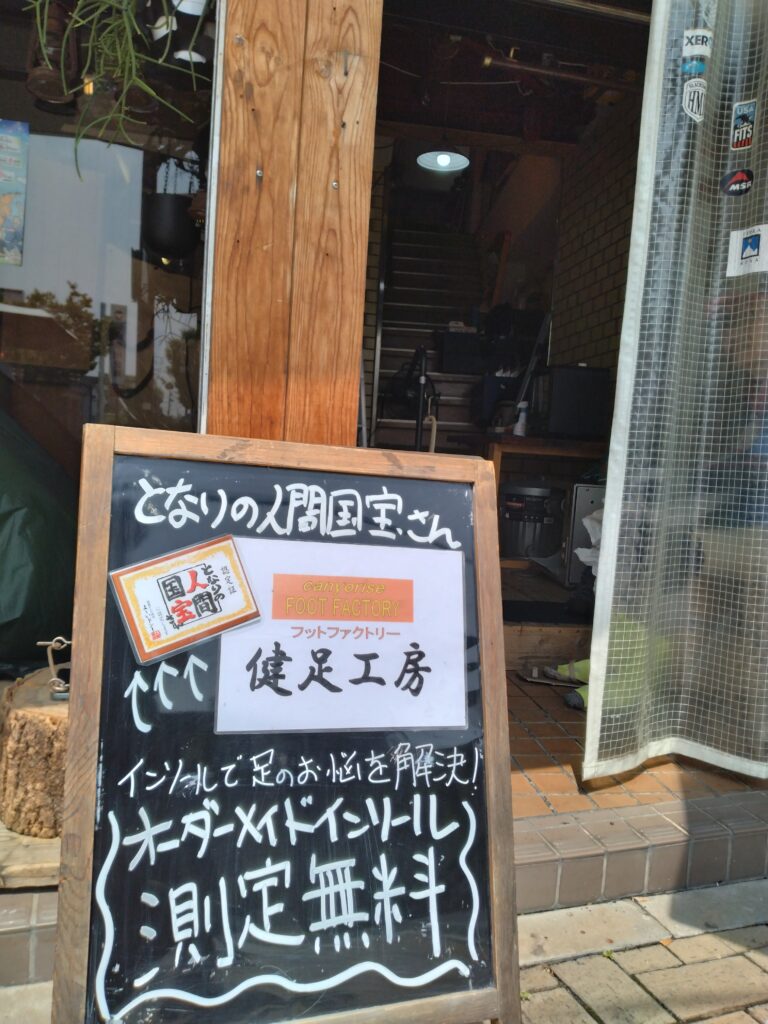 となりの人間国宝さん
認定証
となりの
人間
国宝
さん
canyorise
FOOT FACTORY
フットファクトリー
健足工房
インソールで足のお悩みを解決！
オーダーメイドインソール
測定無料
XER
HM
USA
FITS
MSR